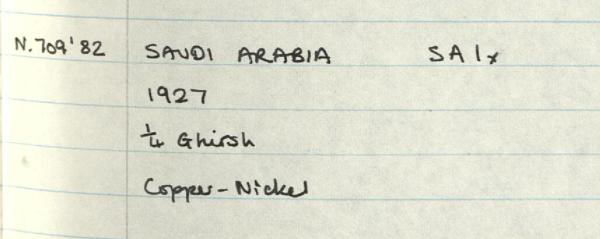 N.709'82 SAUDI ARABIA SA1x
1927
1/4 Ghirsh
Copper-Nickel